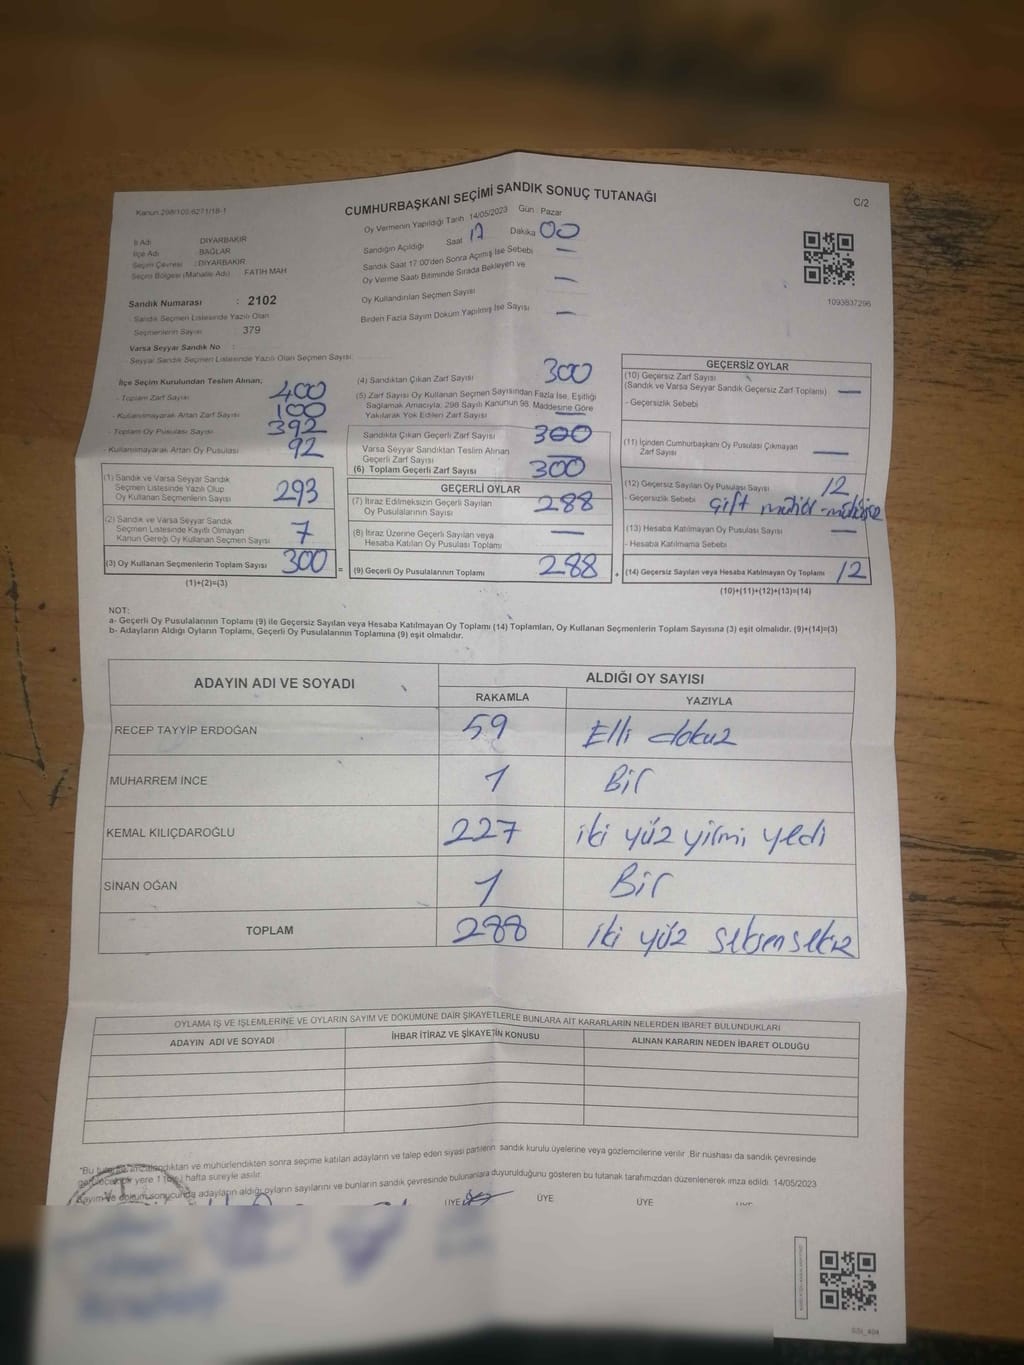 Kanun 298/105,6271/18-1
CUMHURBAŞKANI SEÇİMİ SANDIK SONUÇ TUTANAĞI
C/2
İl Adı DİYARBAKIR
İlçe Adı BAĞLAR
Seçim Çevresi : DİYARBAKIR
Seçim Bölgesi (Mahalle Adı) FATİH MAH
Sandık Numarası : 2102
- Sandık Seçmen Listesinde Yazılı Olan
Seçmenlerin Sayısı 379
Varsa Seyyar Sandık No :
- Seyyar Sandık Seçmen Listesinde Yazılı Olan Seçmen Sayısı:
Oy Vermenin Yapıldığı Tarih 14/05/2023 Gün : Pazar
Sandığın Açıldığı Saat 17 Dakika 00
Sandık Saat 17:00'den Sonra Açılmış İse Sebebi —
Oy Verme Saati Bitiminde Sırada Bekleyen ve
Oy Kullandırılan Seçmen Sayısı —
Birden Fazla Sayım Döküm Yapılmış İse Sayısı —
1093837296
İlçe Seçim Kurulundan Teslim Alınan;
- Toplam Zarf Sayısı 400
- Kullanılmayarak Artan Zarf Sayısı 100
- Toplam Oy Pusulası Sayısı 392
- Kullanılmayarak Artan Oy Pusulası 92
(1) Sandık ve Varsa Seyyar Sandık
Seçmen Listesinde Yazılı Olup
Oy Kullanan Seçmenlerin Sayısı 293
(2) Sandık ve Varsa Seyyar Sandık
Seçmen Listesinde Kayıtlı Olmayan
Kanun Gereği Oy Kullanan Seçmen Sayısı 7
(3) Oy Kullanan Seçmenlerin Toplam Sayısı 300
(1)+(2)=(3)
(4) Sandıktan Çıkan Zarf Sayısı 300
(5) Zarf Sayısı Oy Kullanan Seçmen Sayısından Fazla İse, Eşitliği
Sağlamak Amacıyla, 298 Sayılı Kanunun 98. Maddesine Göre
Yakılarak Yok Edilen Zarf Sayısı —
Sandıkta Çıkan Geçerli Zarf Sayısı 300
Varsa Seyyar Sandıktan Teslim Alınan
Geçerli Zarf Sayısı —
(6) Toplam Geçerli Zarf Sayısı 300
GEÇERLİ OYLAR
(7) İtiraz Edilmeksizin Geçerli Sayılan
Oy Pusulalarının Sayısı 288
(8) İtiraz Üzerine Geçerli Sayılan veya
Hesaba Katılan Oy Pusulası Toplamı —
= (9) Geçerli Oy Pusulalarının Toplamı 288 +
GEÇERSİZ OYLAR
(10) Geçersiz Zarf Sayısı
(Sandık ve Varsa Seyyar Sandık Geçersiz Zarf Toplamı) —
- Geçersizlik Sebebi
(11) İçinden Cumhurbaşkanı Oy Pusulası Çıkmayan
Zarf Sayısı —
(12) Geçersiz Sayılan Oy Pusulası Sayısı 12
- Geçersizlik Sebebi Çift mühür -
(13) Hesaba Katılmayan Oy Pusulası Sayısı —
- Hesaba Katılmama Sebebi
(14) Geçersiz Sayılan veya Hesaba Katılmayan Oy Toplamı 12
(10)+(11)+(12)+(13)=(14)
NOT:
a- Geçerli Oy Pusulalarının Toplamı (9) ile Geçersiz Sayılan veya Hesaba Katılmayan Oy Toplamı (14) Toplamları, Oy Kullanan Seçmenlerin Toplam Sayısına (3) eşit olmalıdır. (9)+(14)=(3)
b- Adayların Aldığı Oyların Toplamı, Geçerli Oy Pusulalarının Toplamına (9) eşit olmalıdır.
ADAYIN ADI VE SOYADI
ALDIĞI OY SAYISI
RAKAMLA YAZIYLA
RECEP TAYYİP ERDOĞAN 59 Elli dokuz
MUHARREM İNCE 1 Bir
KEMAL KILIÇDAROĞLU 227 iki yüz yirmi yedi
SİNAN OĞAN 1 Bir
TOPLAM 288 iki yüz seksen sekiz
OYLAMA İŞ VE İŞLEMLERİNE VE OYLARIN SAYIM VE DÖKÜMÜNE DAİR ŞİKAYETLERLE BUNLARA AİT KARARLARIN NELERDEN İBARET BULUNDUKLARI
ADAYIN ADI VE SOYADI İHBAR İTİRAZ VE ŞİKAYETİN KONUSU ALINAN KARARIN NEDEN İBARET OLDUĞU
"Bu tutanak imzalandıktan ve mühürlendikten sonra seçime katılan adayların ve talep eden siyasi partilerin sandık kurulu üyelerine veya gözlemcilerine verilir. Bir nüshası da sandık çevresinde
yere 1 hafta süreyle asılır.
Sayım ve döküm sonucunda adayların aldığı oyların sayılarını ve bunların sandık çevresinde bulunanlara duyurulduğunu gösteren bu tutanak tarafımızdan düzenlenerek imza edildi. 14/05/2023
ÜYE ÜYE ÜYE ÜYE